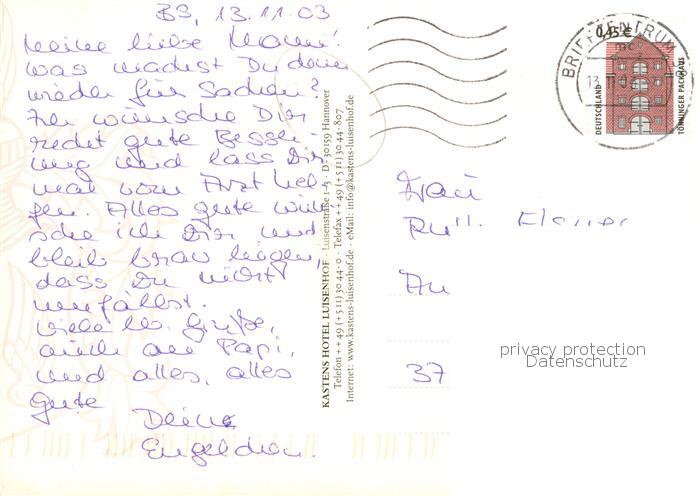 BS, 13.11.03
Meine liebe Mami!
was machst Du denn
wieder für Sachen?
Ich wünsche Dir
recht gute Besse-
rung und lass Dir
mal vom Arzt hel-
fen. Alles gute wün-
sche ich Dir und
bleib brav liegen,
dass Du nicht
umfällst.
viele lb. Grüße,
auch an Papi,
und alles, alles
gute
Deine
Engelchen.
KASTENS HOTEL LUISENHOF · Luisenstraße 1-3 · D-30159 Hannover
Telefon ++49 (+511) 30 44-0 · Telefax ++49 (+511) 30 44-807
Internet: www.kastens-luisenhof.de · eMail: info@kastens-luisenhof.de
BRIEFZENTRUM
mc
13.11.
0,45 €
DEUTSCHLAND
TÖNNINGER PACKHAUS
Frau
An
37
privacy protection
Datenschutz